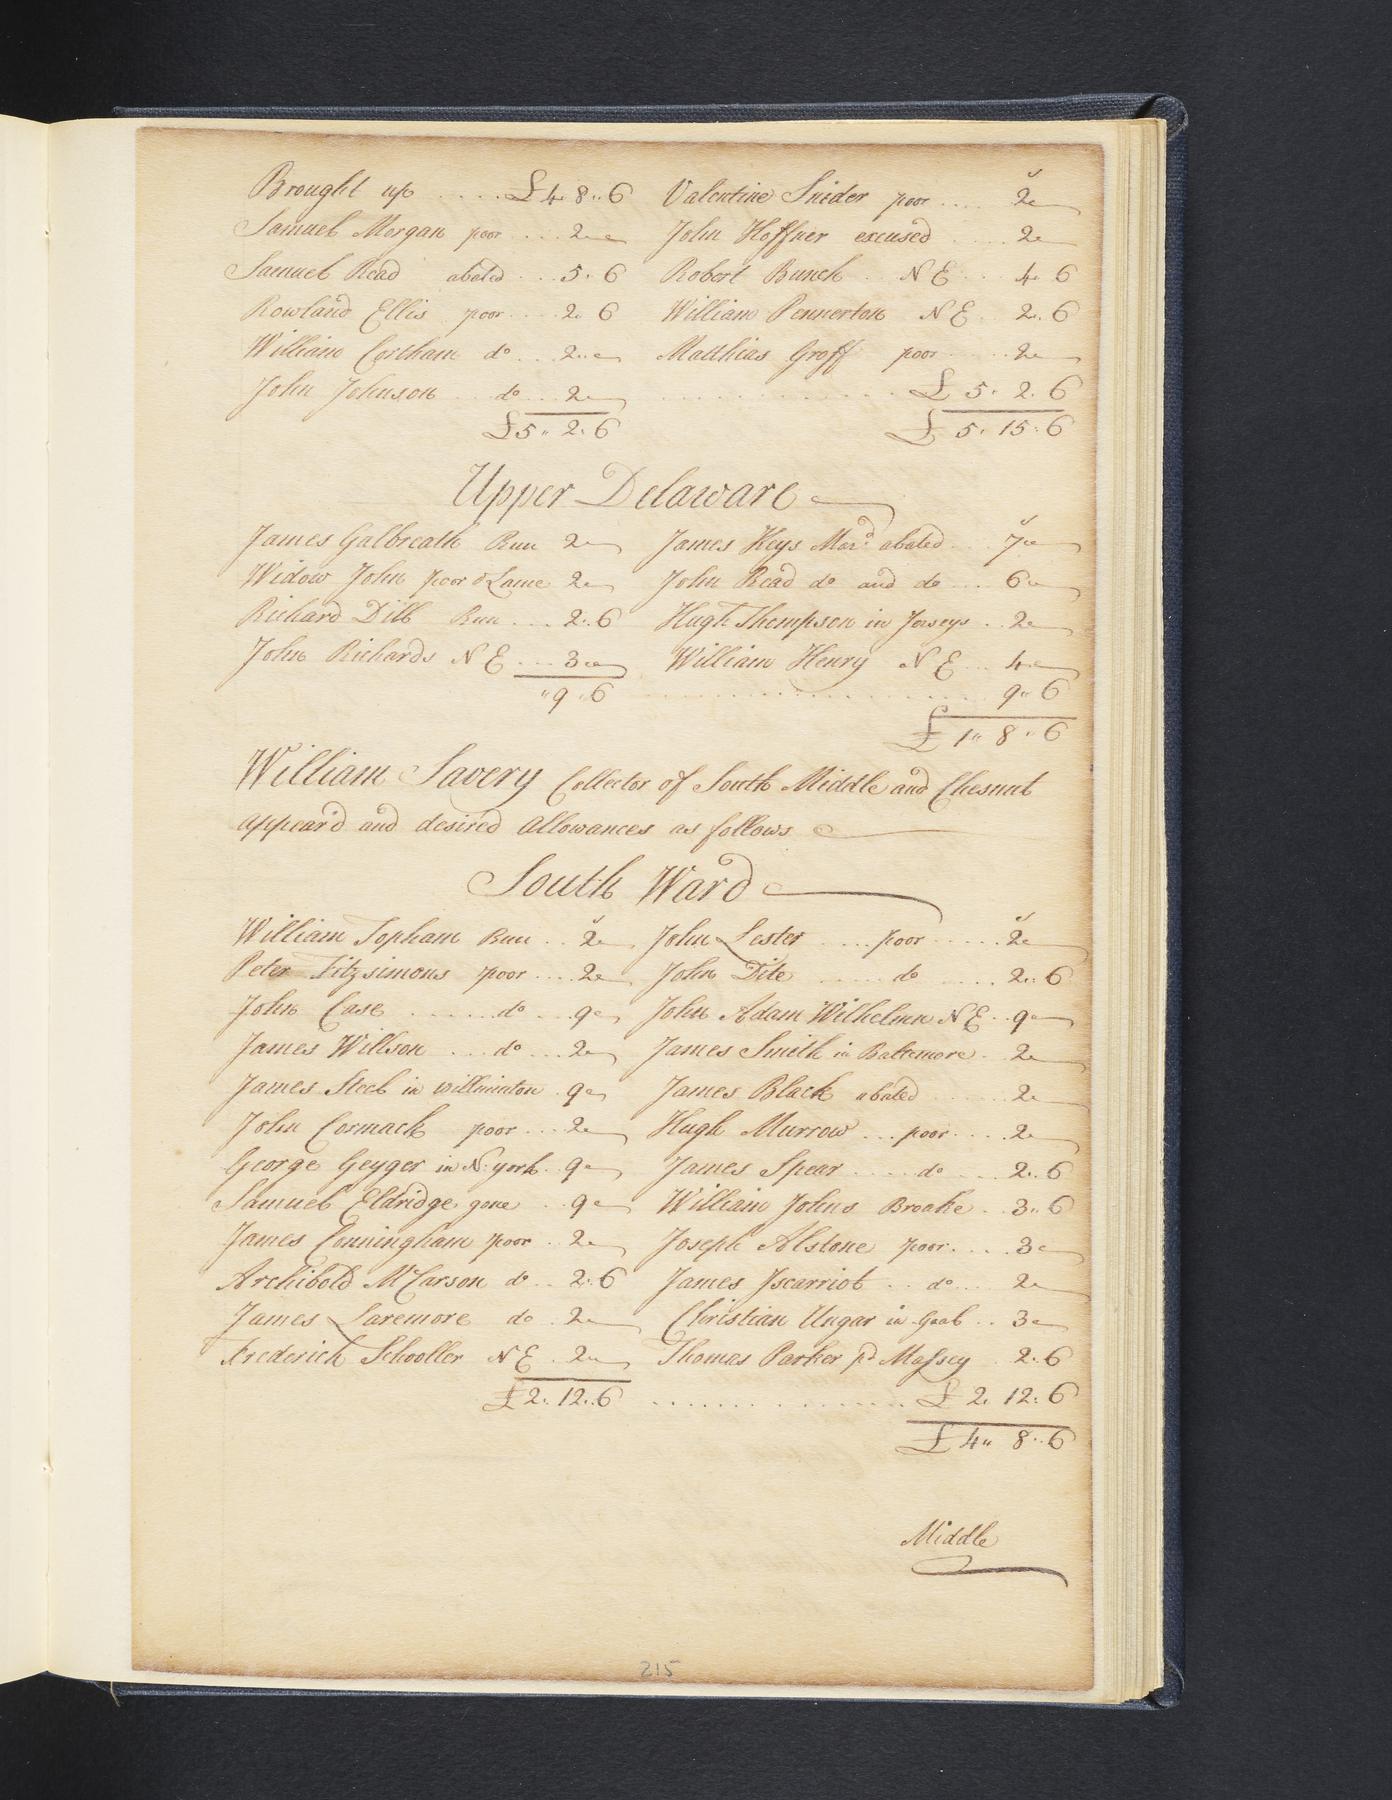 Brought up ..... £4 8..6 Valentine Snider poor .... 2
Samuel Morgan poor ... 2 John Hoffner excused .... 2
Samuel Read abated ... 5. 6 Robert Bunch .. N E ... 4 6
Rowland Ellis poor .... 2. 6 William Pennerton N E .. 2..6
William Cortham do ... 2 Matthias Groff poor ..... 2
John Johnson .. do ... 2 ............ £ 5. 2. 6
£5.. 2. 6 £ 5. 15. 6
Upper Delaware
James Galbreath Run 2 James Keys Mard. abated ... 7
Widow John poor & Lame 2 John Read do and do ... 6
Richard Dill Run .... 2..6 Hugh Thompson in Jerseys .. 2
John Richards N E ... 3 William Henry N E ... 4
"9..6 .................. 9..6
£ 1.. 8..6
William Savery Collector of South Middle and Chesnut
appear'd and desired allowances as follows
South Ward
William Topham Run .. 2 John Lester .... poor ..... 2
Peter Fitzsimons poor .... 2 John Dite ..... do .... 2..6
John Case ...... do ... 9 John Adam Wilhelmn N E .. 9
James Willson ... do ... 2 James Smith in Baltemore .. 2
James Steel in willminton . 9 James Black abated ...... 2
John Cormack poor ... 2 Hugh Murrow ... poor .... 2
George Geyger in N. york .. 9 James Spear .... do .... 2..6
Samuel Eldridge gone .. 9 William Johns Broake .. 3..6
James Conningham poor .. 2 Joseph Alstone poor .... 3
Archibold McCarson do .. 2..6 James Iscarriot .. do ... 2
James Laremore do . 2 Christian Ungar in Goal .. 3
Frederich Schooller N E . 2 Thomas Parker pd Massey . 2..6
£2. 12..6 ............... £ 2. 12. 6
£ 4.. 8..6
Middle
215